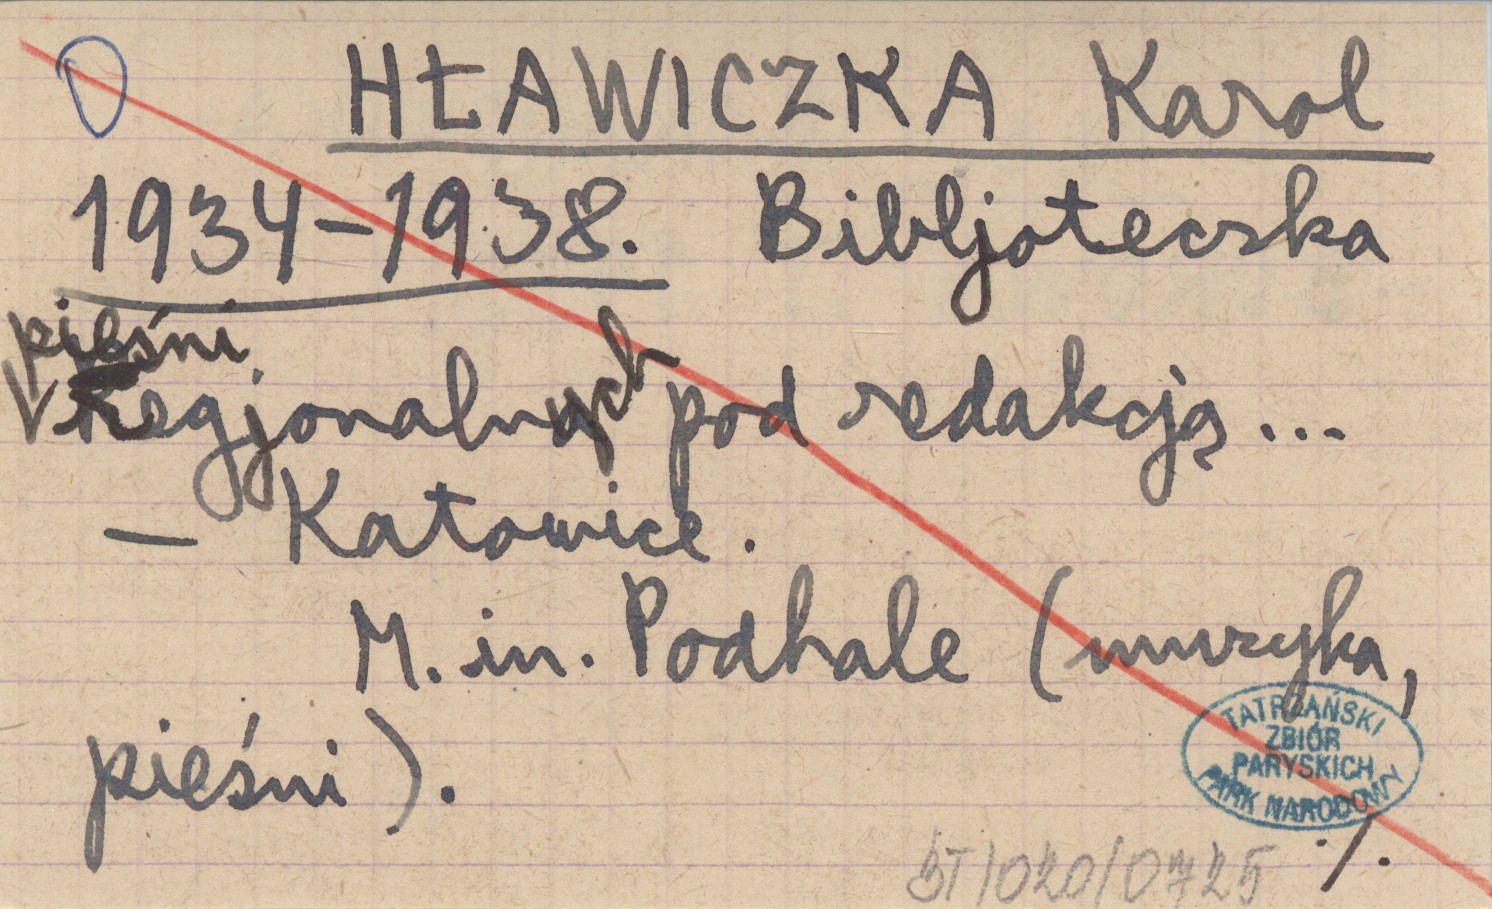 HŁAWICZKA Karol
1934-1938. Bibljoteczka
pieśni
Regjonalnych pod redakcją...
— Katowice.
M. in. Podhale (muzyka,
pieśni).
TATRZAŃSKI
ZBIÓR
PARYSKICH
PARK NARODOWY
ST/020/0725 ·/.